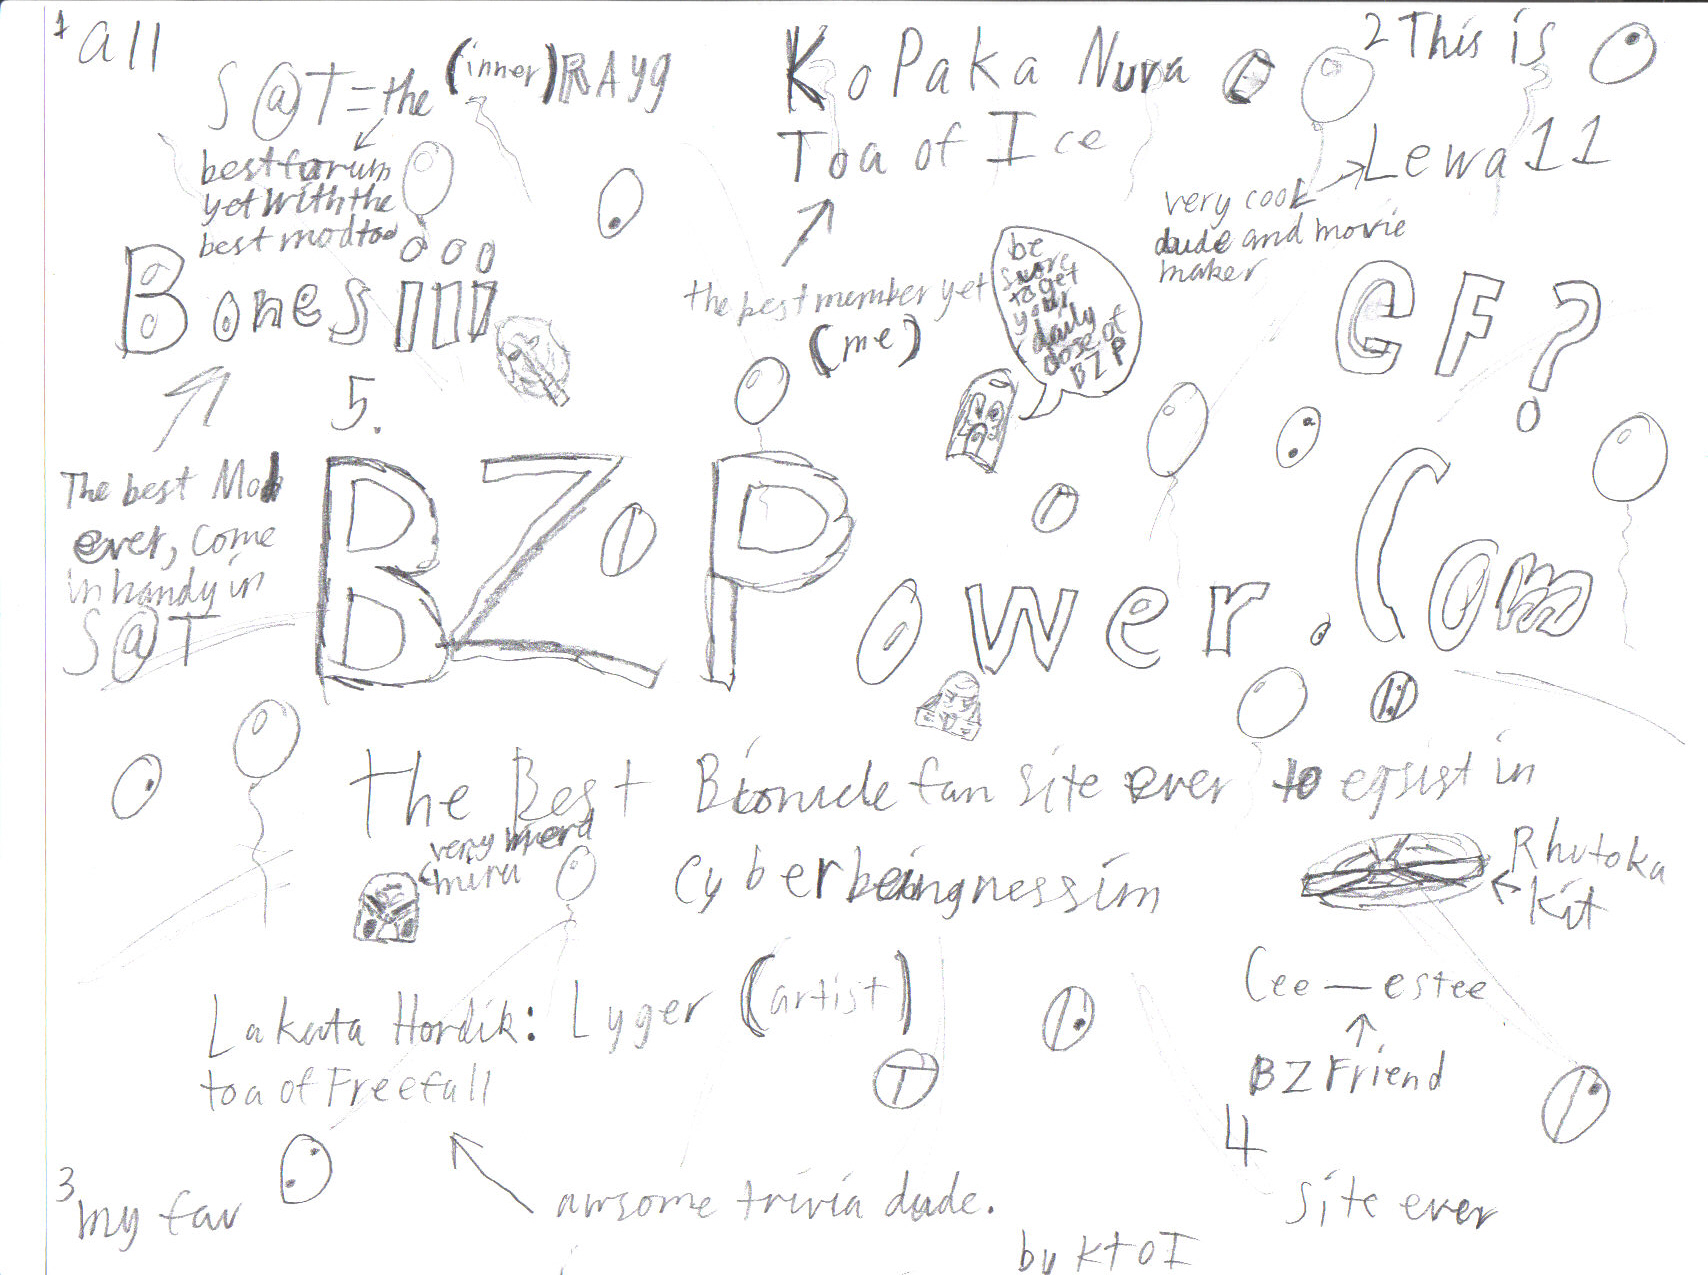 1 all
S@T = the (inner) RAyg
best forum
yet with the
best mod too
KoPaka Nuva
Toa of Ice
the best member yet
(me)
2 This is
Lewa11
very cool
dude and movie
maker
be
suore
to get
your
daily
dose of
BZP
GF?
Bonesiii
The best Mod
ever, come
in handy in
S@T
5.
BZPower.Com
The Best Bionicle fan site ever to eqsist in
Cyberbeingnessim
very wierd
miru
Rhotoka
Kit
Lakata Hordik: Lyger (artist)
toa of Freefall
Cee-estee
BZ Friend
3 my fav
awsome trivia dude.
4
site ever
by KtoI